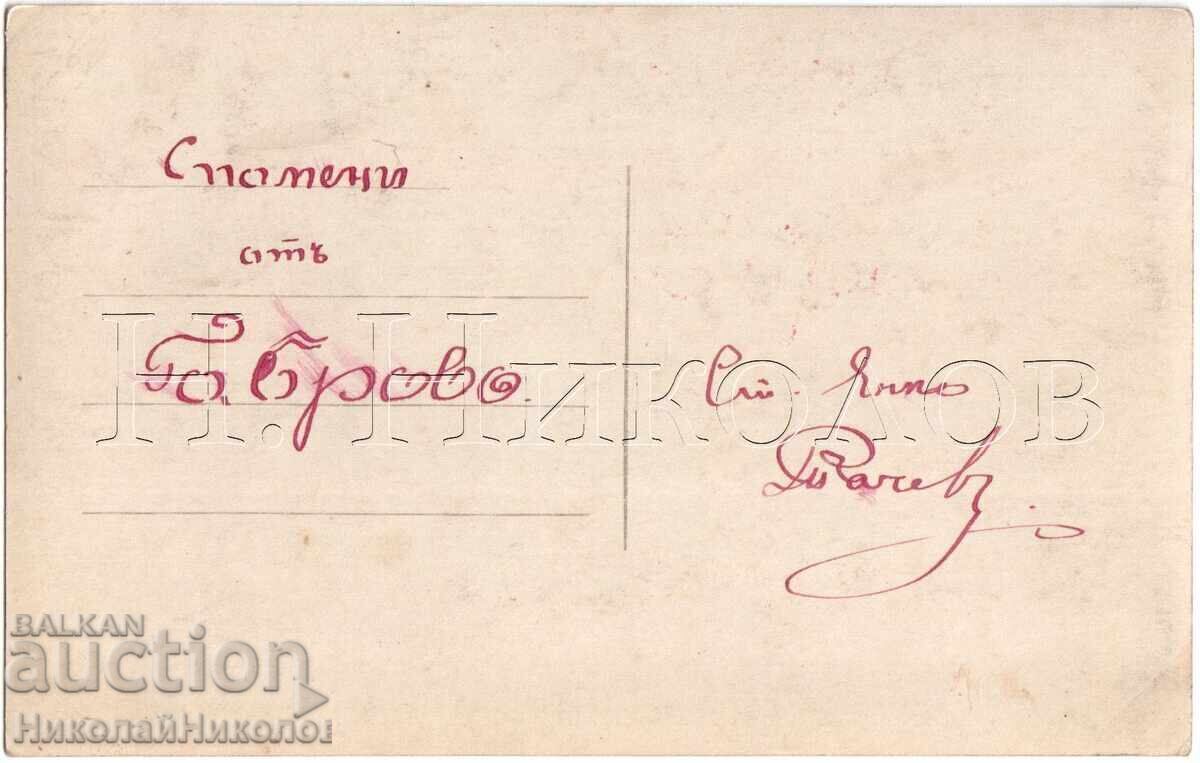 Спомени
отъ
Габрово.
Ст. Янко
Ткачевъ
Н. Николов
BALKAN
auction
НиколайНиколов